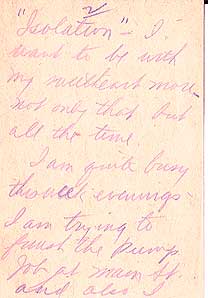 2
"Isolation" - I
want to be with
my sweetheart more -
not only that but
all the time.
I am quite busy
this week evenings -
I am trying to
finish the pump
Job at main St.
and also I